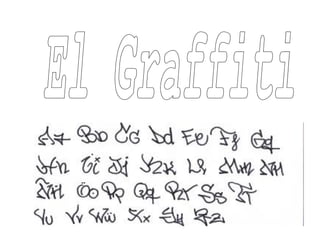 El Graffiti
Aa Bb Cc Dd Ee Ff Gg
Hh Ii Jj Kk Ll Mm Nn
Ññ Oo Pp Qq Rr Ss Tt
Uu Vv Ww Xx Yy Zz